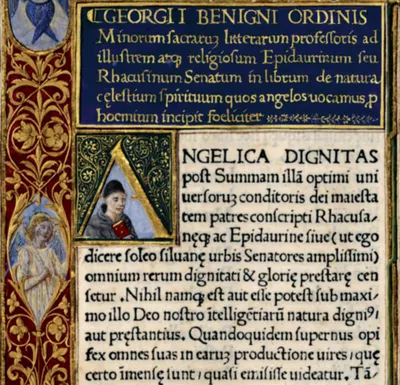 ꟾGEORGII BENIGNI ORDINIS
Minorum sacraruʒ litterarum professoris ad
illustrem atqʒ religiosum Epidaurinum seu
Rhacusinum Senatum in librum de natura
cęlestium spirituum quos angelos uocamus, ꝓ
hoemium incipit foeliciter
ANGELICA DIGNITAS
post Summam illā optimi uni
uersoruʒ conditoris dei maiesta
tem patres conscripti Rhacusa‑
nęqʒ ac Epidaurine siue (ut ego
dicere soleo siluanę urbis Senatores amplissimi)
omnium rerum dignitati & glorię prestare cen
setur. Nihil namqʒ est aut esse potest sub maxi‑
mo illo Deo nostro ītelligētiarū natura digniꝰ
aut pręstantius. Quandoquidem supernus opi
fex omnes suas in earuʒ productione uires (quę
certo īmense sunt) quasi emisisse uideatur. Tā‑